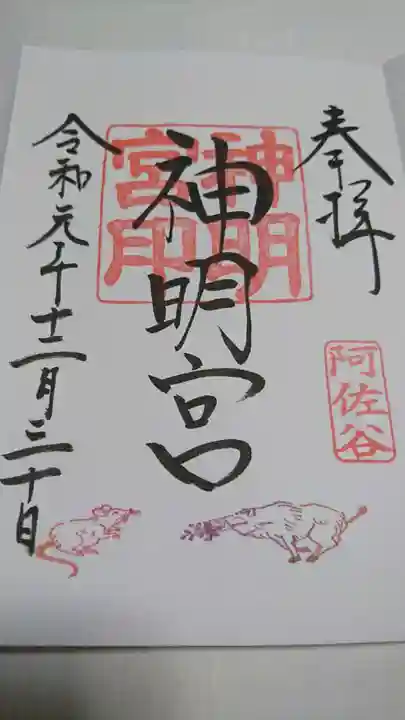 奉拝
阿佐谷
神明宮
神明宮印
令和元年十二月三十日